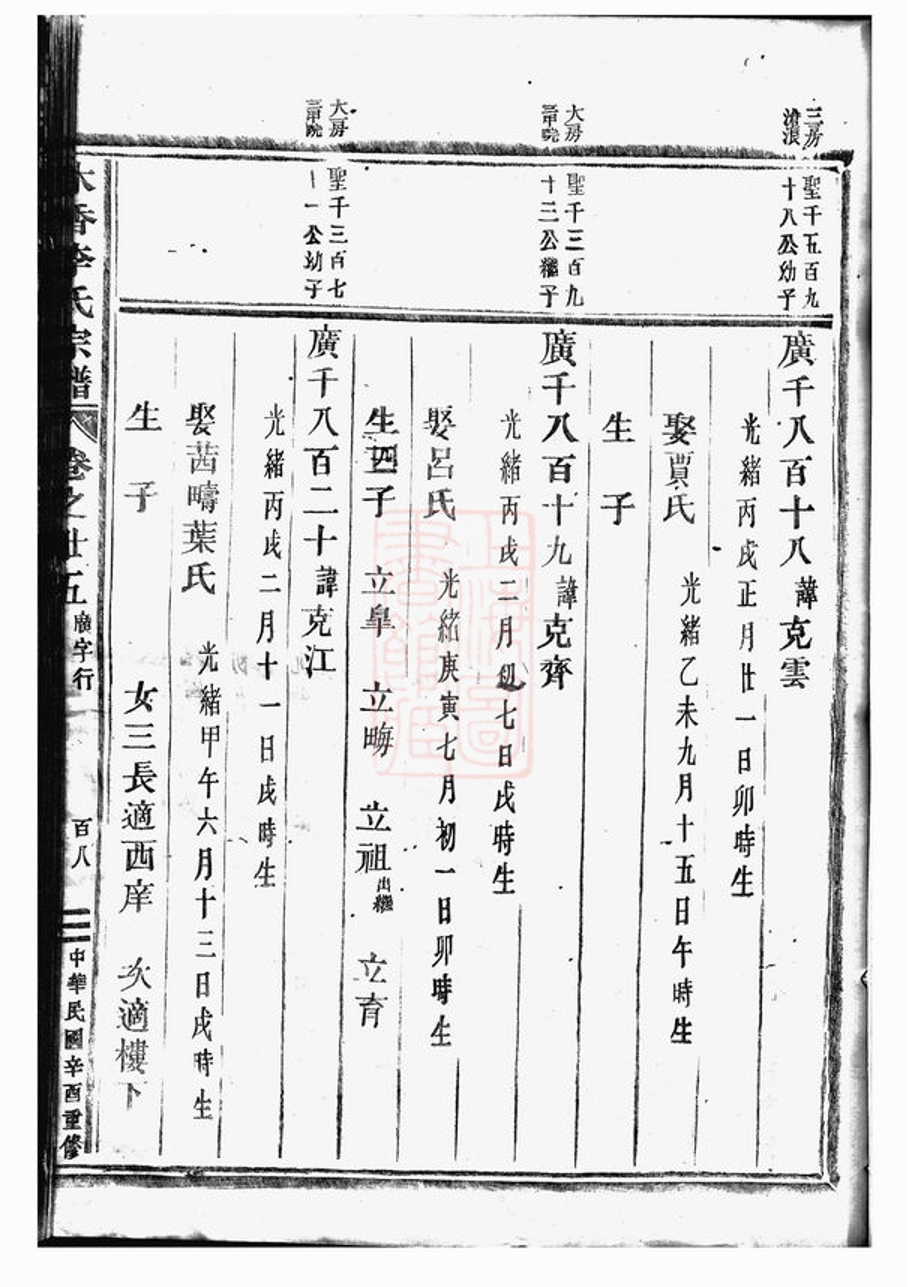 三房
滄浪
聖千五百九
十八公幼子
廣千八百十八諱克雲
光緒丙戌正月廿一日卯時生
娶賈氏 光緒乙未九月十五日午時生
生 子
大房
聖千三百九
十三公繼子
廣千八百十九諱克齊
光緒丙戌二月初七日戌時生
娶呂氏 光緒庚寅七月初一日卯時生
生四子 立皐 立畮 立祖出繼 立育
大房
聖千三百七
十一公幼子
廣千八百二十諱克江
光緒丙戌二月十一日戌時生
娶茜疇葉氏 光緒甲午六月十三日戌時生
生 子 女三長適西庠 次適樓下
香李氏宗譜 卷之廿五 廣字行 百八 中華民國辛酉重修